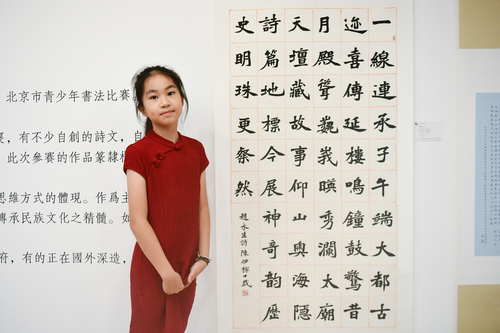 北京市青少年書法比賽
，有不少自創的詩文，自
此次參賽的作品篆隸
思維方式的體現。作爲主
傳承民族文化之精髓。如
府，有的正在國外深造，
一線連承子午端大都古
迹喜傳延樓鳴鐘鼓驚昔
月殿聳巍峩暎秀瀾太廟
天壇藏故事仰山奧海隱
詩篇地標今展神奇韵歷
史明珠更粲然
趙永生詩 陳伊檸十歲